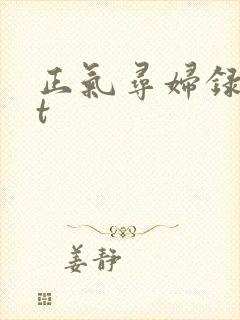 正氣尋婦録
t
姜静